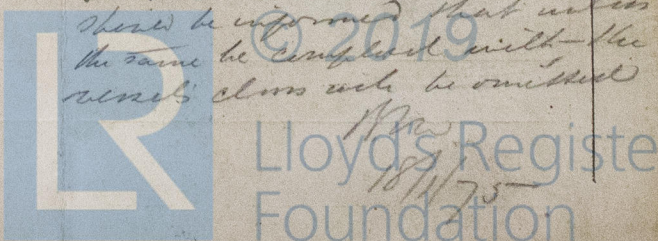 should be informed that unless
the same be complied with the
vessel's class will be omitted
18/11/75
LR
© 2019
Lloyd's Registe
Foundation